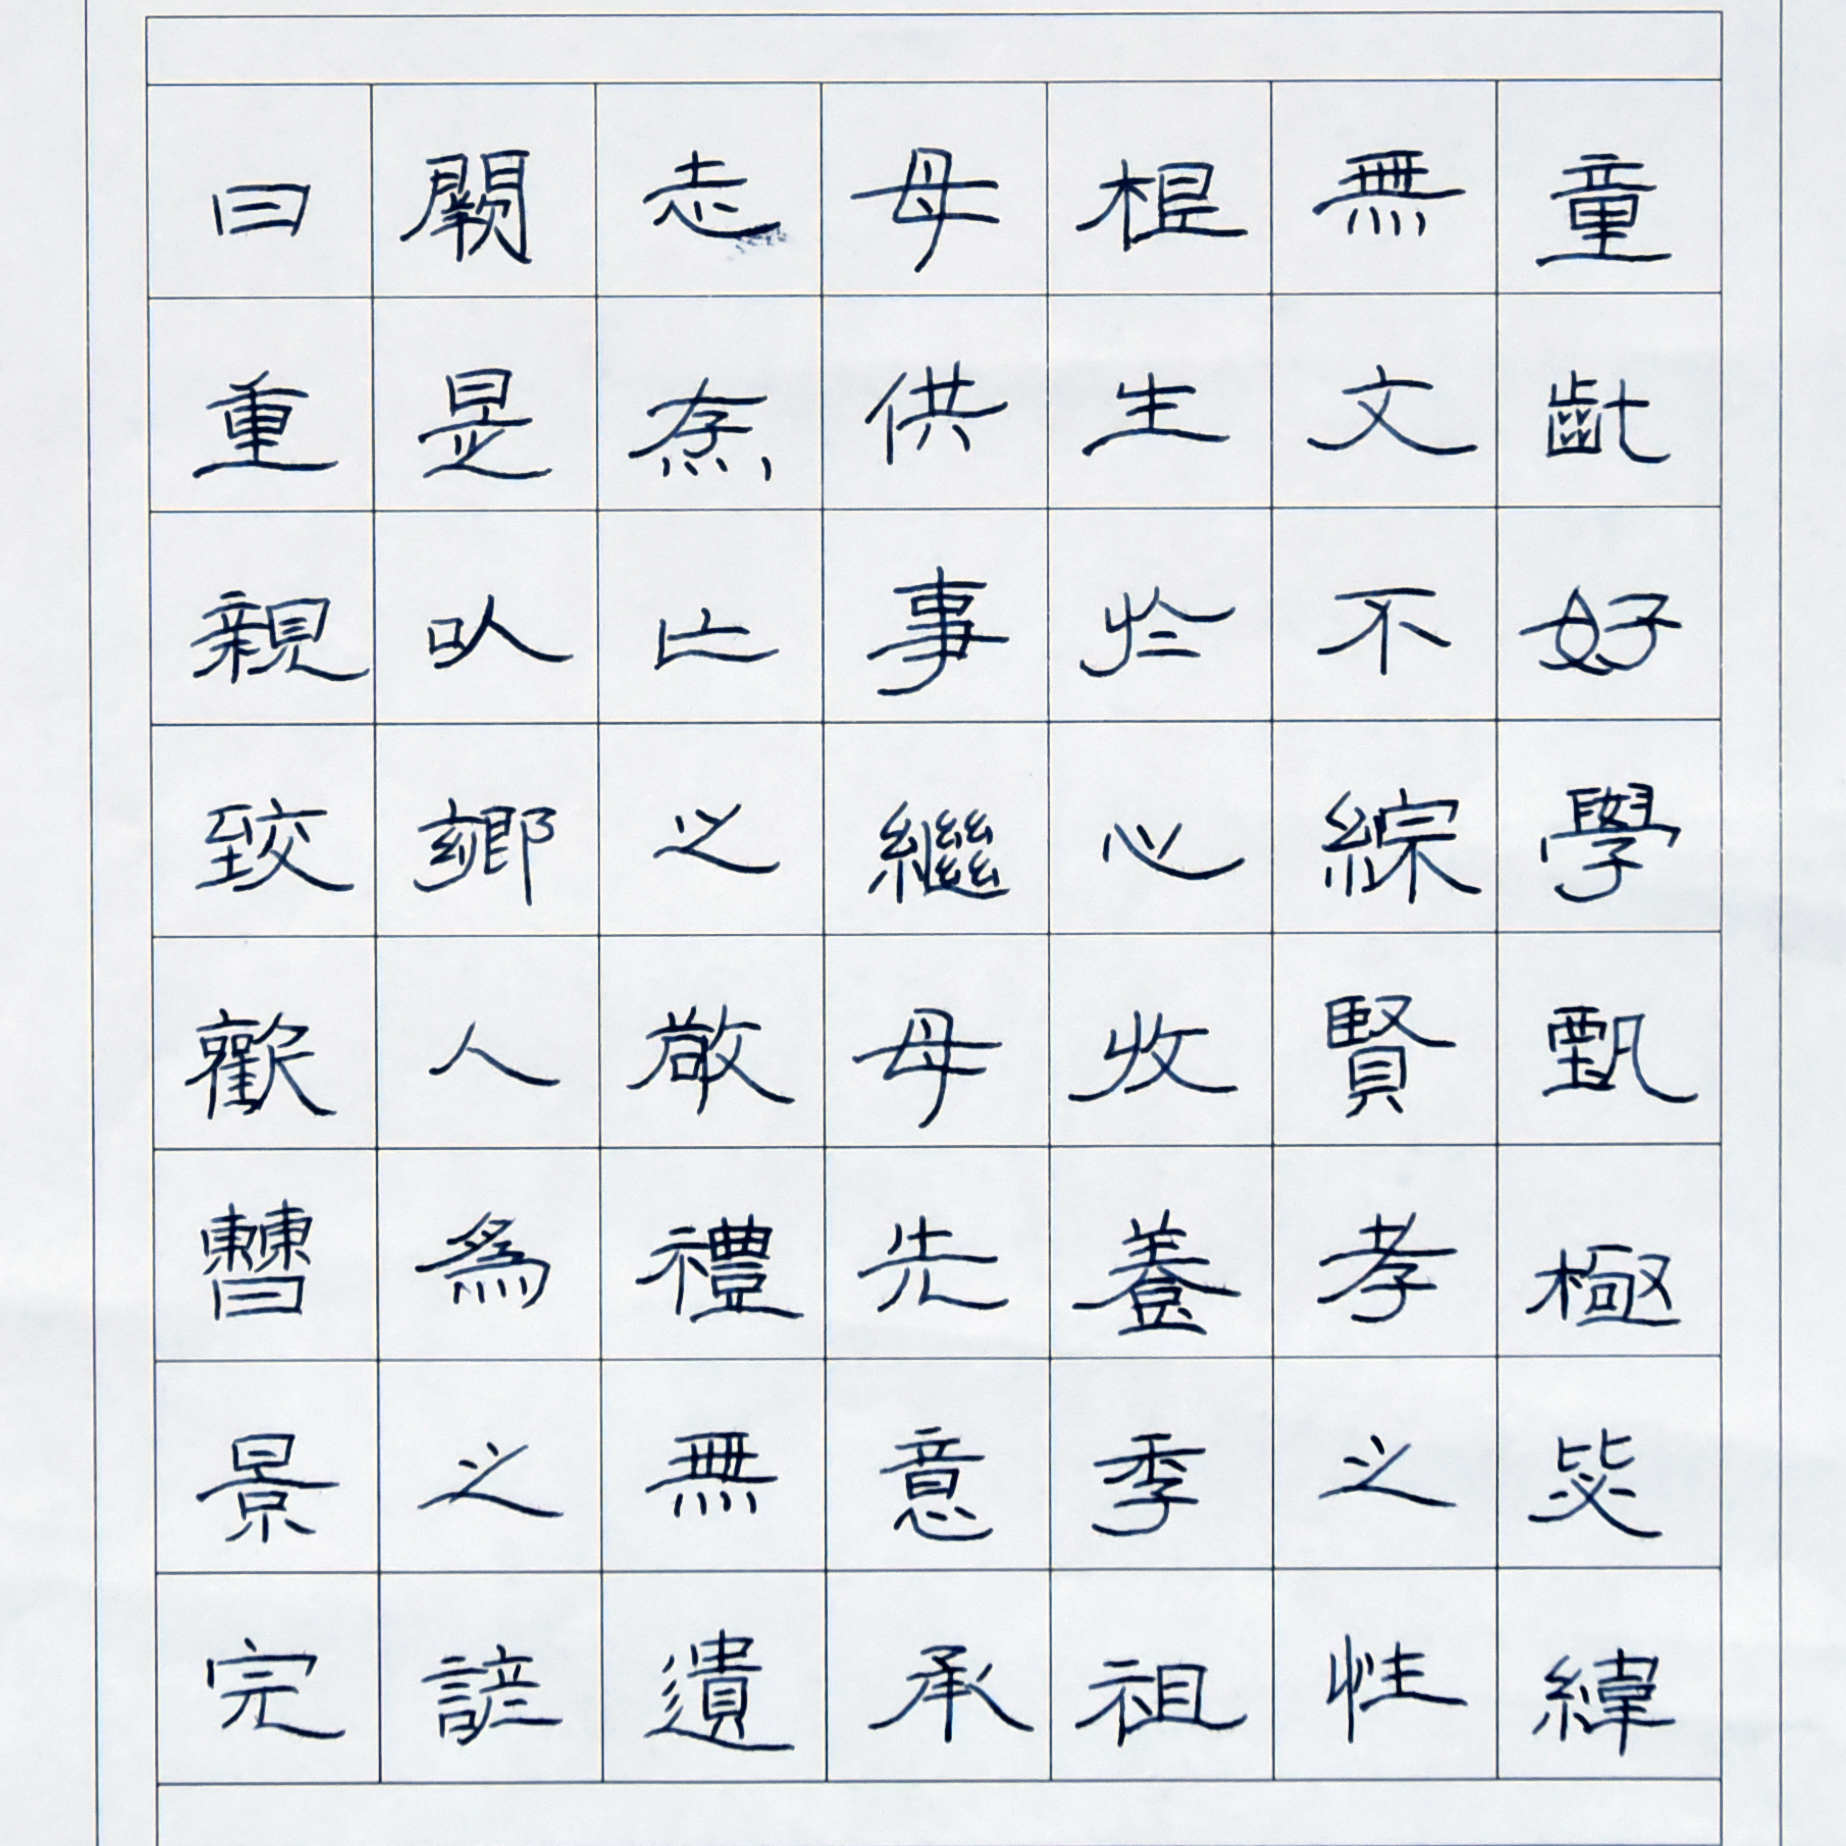 童齔好學甄極毖緯
無文不綜賢孝之性
根生於心收養季祖
母供事繼母先意承
志存亡之敬禮無遺
闕是以鄉人為之諺
曰重親致歡曹景完